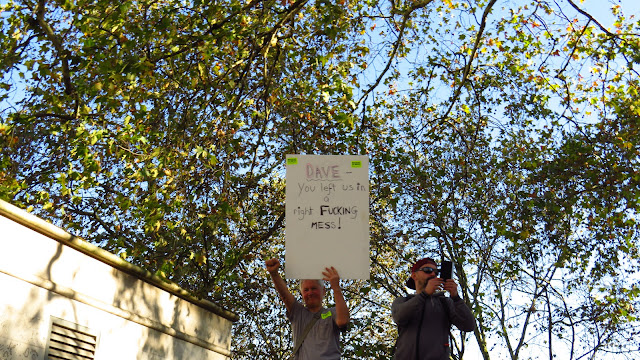 DAVE -
You left us in
a
right FUCKING
MESS!